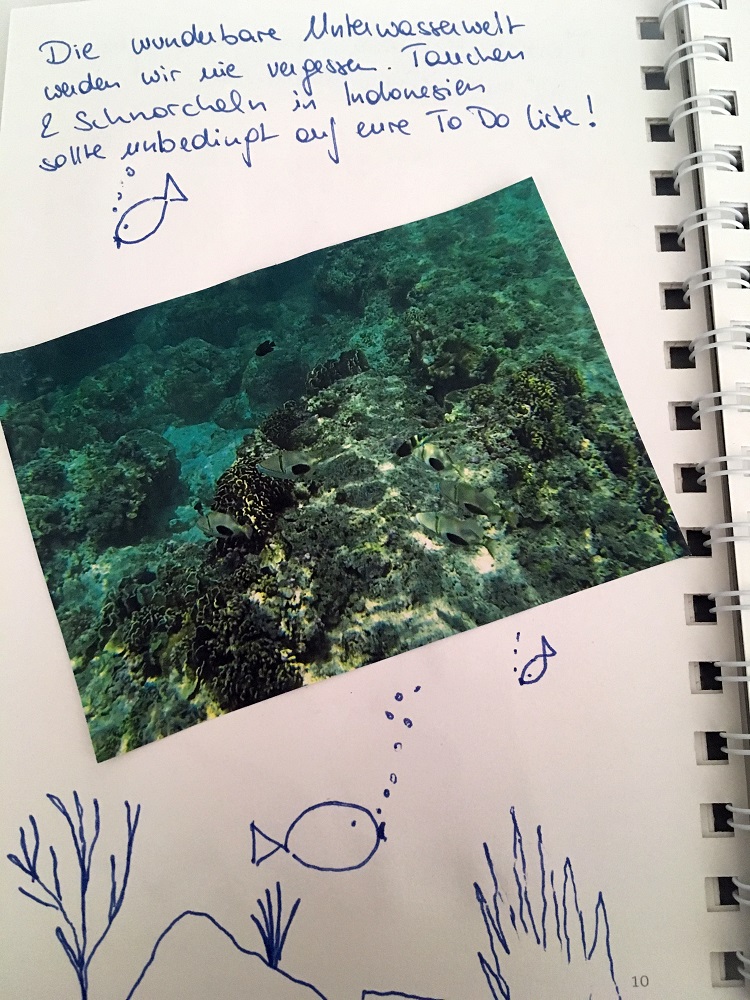 Die wunderbare Unterwasserwelt
werden wir nie vergessen. Tauchen
& Schnorcheln in Indonesien
sollte unbedingt auf eure To Do liste!
10